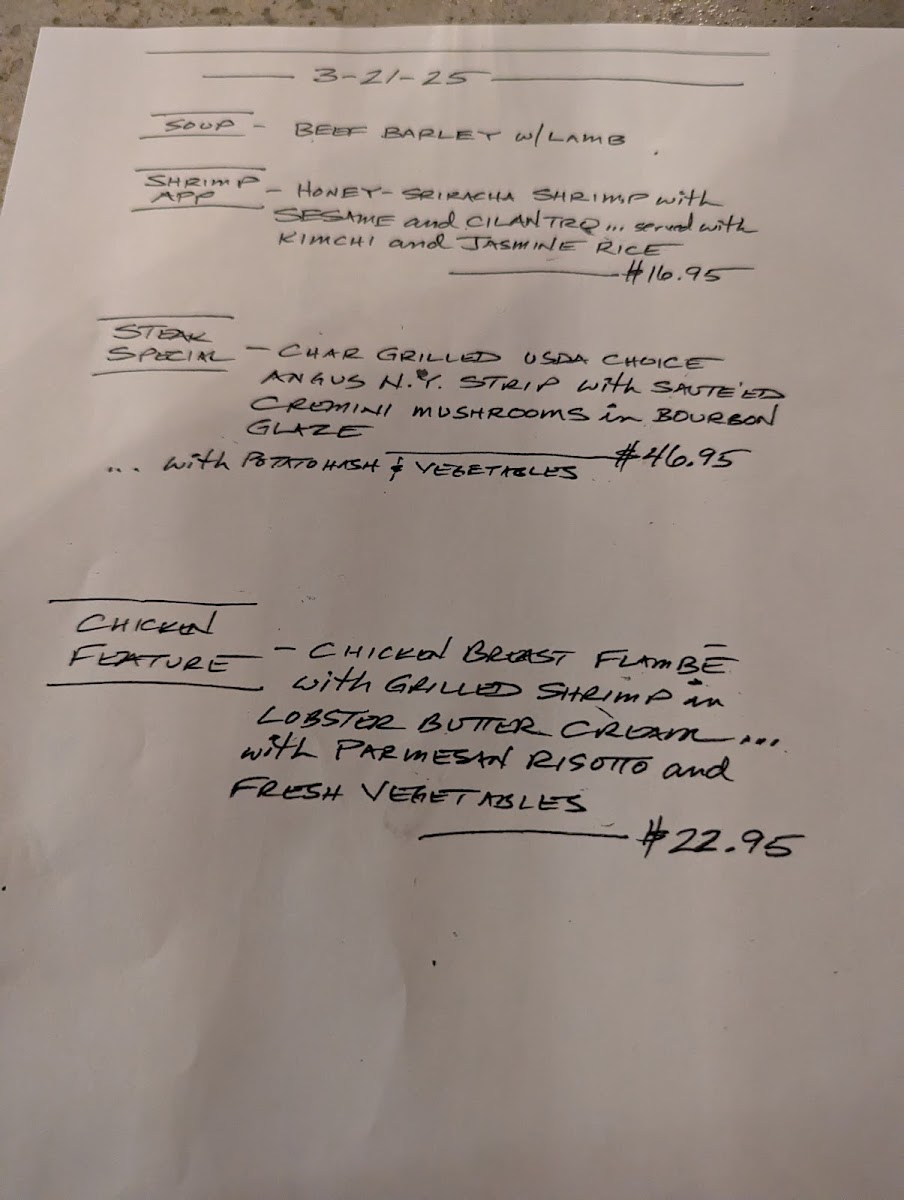 3-21-25
SOUP - BEEF BARLEY W/LAMB
SHRIMP APP - HONEY-SRIRACHA SHRIMP with
SESAME and CILANTRO... served with
KIMCHI and JASMINE RICE
$16.95
STEAK SPECIAL - CHAR GRILLED USDA CHOICE
ANGUS N.Y. STRIP with SAUTE'ED
CREMINI MUSHROOMS in BOURBON
GLAZE
$46.95
... with POTATO HASH & VEGETABLES
CHICKEN FEATURE - CHICKEN BREAST FLAMBÉ
with GRILLED SHRIMP in
LOBSTER BUTTER CREAM...
with PARMESAN RISOTTO and
FRESH VEGETABLES
$22.95